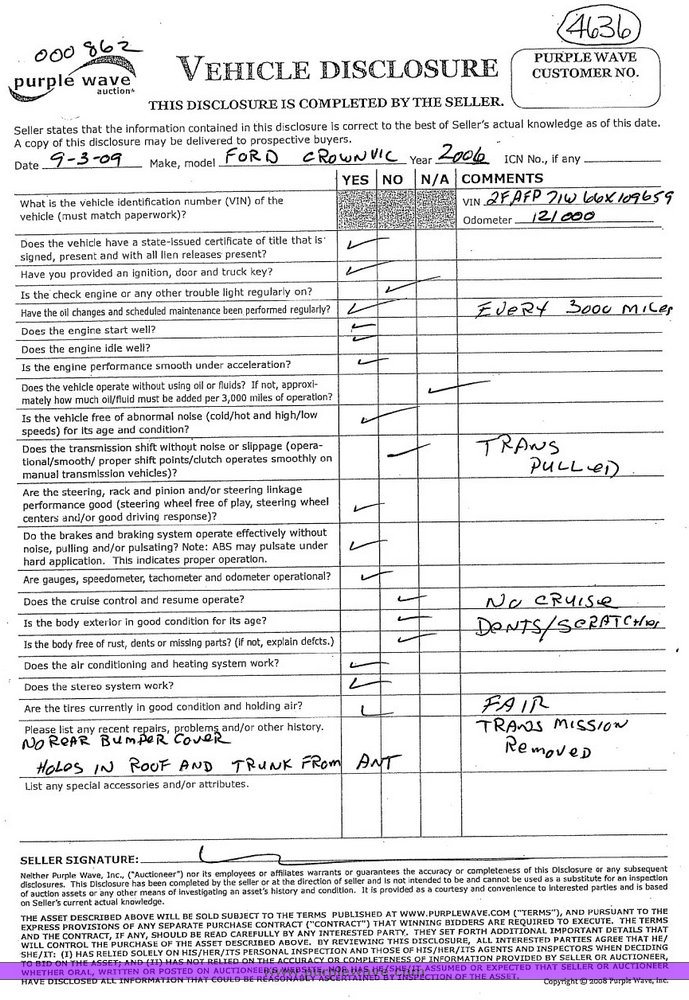 4636
000862
purple wave
auction
VEHICLE DISCLOSURE
PURPLE WAVE
CUSTOMER NO.
THIS DISCLOSURE IS COMPLETED BY THE SELLER.
Seller states that the information contained in this disclosure is correct to the best of Seller's actual knowledge as of this date.
A copy of this disclosure may be delivered to prospective buyers.
Date 9-3-09 Make, model FORD CROWNVIC Year 2006 ICN No., if any
YES NO N/A COMMENTS
What is the vehicle identification number (VIN) of the
vehicle (must match paperwork)?
VIN 2FAFP71W66X109659
Odometer 121000
Does the vehicle have a state-issued certificate of title that is
signed, present and with all lien releases present?
Have you provided an ignition, door and truck key?
Is the check engine or any other trouble light regularly on?
Have the oil changes and scheduled maintenance been performed regularly? EVERY 3000 MILES
Does the engine start well?
Does the engine idle well?
Is the engine performance smooth under acceleration?
Does the vehicle operate without using oil or fluids? If not, approxi-
mately how much oil/fluid must be added per 3,000 miles of operation?
Is the vehicle free of abnormal noise (cold/hot and high/low
speeds) for its age and condition?
Does the transmission shift without noise or slippage (opera-
tional/smooth/ proper shift points/clutch operates smoothly on
manual transmission vehicles)?
TRANS
PULLED
Are the steering, rack and pinion and/or steering linkage
performance good (steering wheel free of play, steering wheel
centers and/or good driving response)?
Do the brakes and braking system operate effectively without
noise, pulling and/or pulsating? Note: ABS may pulsate under
hard application. This indicates proper operation.
Are gauges, speedometer, tachometer and odometer operational?
Does the cruise control and resume operate? NO CRUISE
Is the body exterior in good condition for its age? DENTS/SCRATCHES
Is the body free of rust, dents or missing parts? (if not, explain defcts.)
Does the air conditioning and heating system work?
Does the stereo system work?
Are the tires currently in good condition and holding air? FAIR
Please list any recent repairs, problems and/or other history. TRANSMISSION
NO REAR BUMPER COVER Removed
HOLES IN ROOF AND TRUNK FROM ANT
List any special accessories and/or attributes.
SELLER SIGNATURE:
Neither Purple Wave, Inc., ("Auctioneer") nor its employees or affiliates warrants or guarantees the accuracy or completeness of this Disclosure or any subsequent
disclosures. This Disclosure has been completed by the seller or at the direction of seller and is not intended to be and cannot be used as a substitute for an inspection
of auction assets or any other means of investigating an asset's history and condition. It is provided as a courtesy and convenience to interested parties and is based
on Seller's current actual knowledge.
THE ASSET DESCRIBED ABOVE WILL BE SOLD SUBJECT TO THE TERMS PUBLISHED AT WWW.PURPLEWAVE.COM ("TERMS"), AND PURSUANT TO THE
EXPRESS PROVISIONS OF ANY SEPARATE PURCHASE CONTRACT ("CONTRACT") THAT WINNING BIDDERS ARE REQUIRED TO EXECUTE. THE TERMS
AND THE CONTRACT, IF ANY, SHOULD BE READ CAREFULLY BY ANY INTERESTED PARTY. THEY SET FORTH ADDITIONAL IMPORTANT DETAILS THAT
WILL CONTROL THE PURCHASE OF THE ASSET DESCRIBED ABOVE. BY REVIEWING THIS DISCLOSURE, ALL INTERESTED PARTIES AGREE THAT HE/
SHE/IT: (I) HAS RELIED SOLELY ON HIS/HER/ITS PERSONAL INSPECTION AND THOSE OF HIS/HER/ITS AGENTS AND INSPECTORS WHEN DECIDING
TO BID ON THE ASSET; AND (II) HAS NOT RELIED ON THE ACCURACY OR COMPLETENESS OF INFORMATION PROVIDED BY SELLER OR AUCTIONEER,
WHETHER ORAL, WRITTEN OR POSTED ON AUCTIONEER'S WEBSITE, NOR HAS HE/SHE/IT ASSUMED OR EXPECTED THAT SELLER OR AUCTIONEER
HAVE DISCLOSED ALL INFORMATION THAT COULD BE REASONABLY ASCERTAINED BY INSPECTION OF THE ASSET. Copyright © 2008 Purple Wave, Inc.